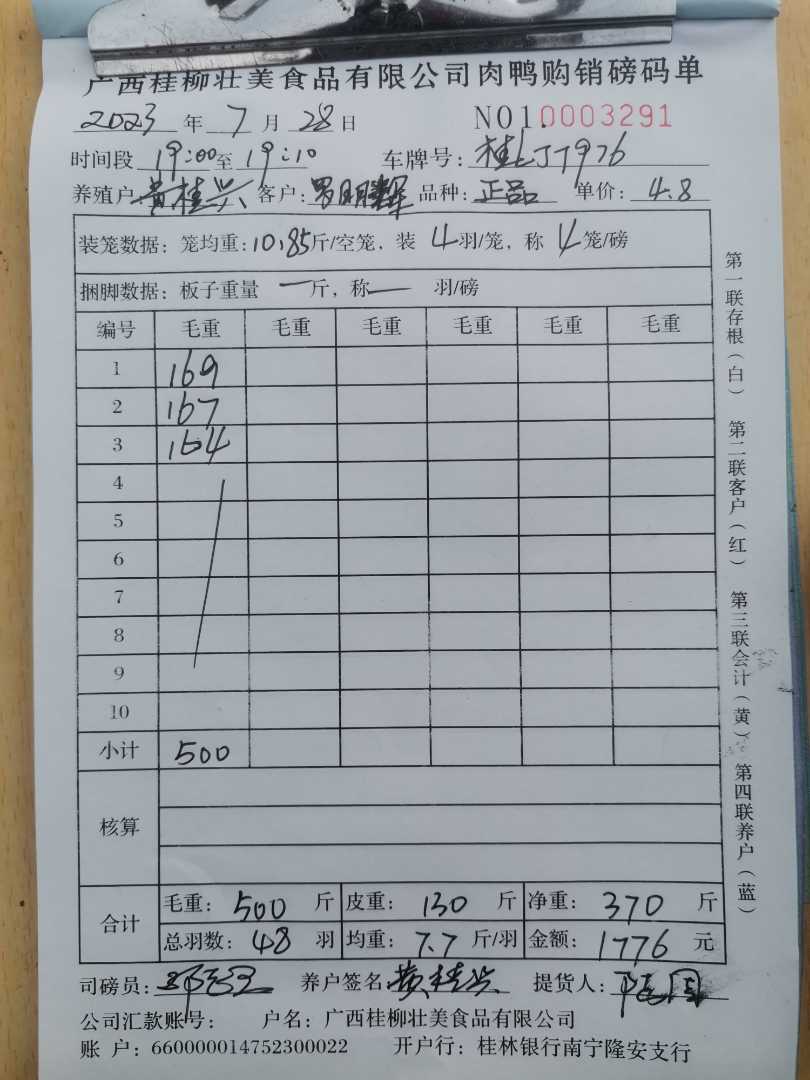 广西桂柳壮美食品有限公司肉鸭购销磅码单
2023 年 7 月 28 日 NO1.0003291
时间段 19:00 至 19:10 车牌号: 桂LJT976
养殖户 黄桂兴 客户: 罗明辉 品种: 正品 单价: 4.8
装笼数据: 笼均重: 10.85 斤/空笼, 装 4 羽/笼, 称 4 笼/磅
捆脚数据: 板子重量 — 斤, 称 — 羽/磅
编号 毛重 毛重 毛重 毛重 毛重 毛重
1 169
2 167
3 164
4
5
6
7
8
9
10
小计 500
核算
合计
毛重: 500 斤 皮重: 130 斤 净重: 370 斤
总羽数: 48 羽 均重: 7.7 斤/羽 金额: 1776 元
司磅员: 养户签名 黄桂兴 提货人:
公司汇款账号: 户名: 广西桂柳壮美食品有限公司
账 户: 660000014752300022 开户行: 桂林银行南宁隆安支行
第一联存根(白) 第二联客户(红) 第三联会计(黄) 第四联养户(蓝)